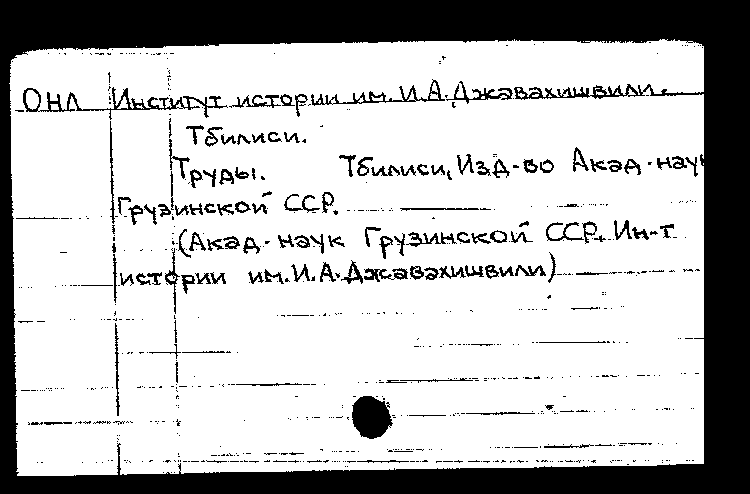 ОНЛ Институт истории им. И.А. Джавахишвили.
Тбилиси.
Труды. Тбилиси, Изд-во Акад. наук
Грузинской ССР.
(Акад. наук Грузинской ССР. Ин-т
истории им. И.А. Джавахишвили)